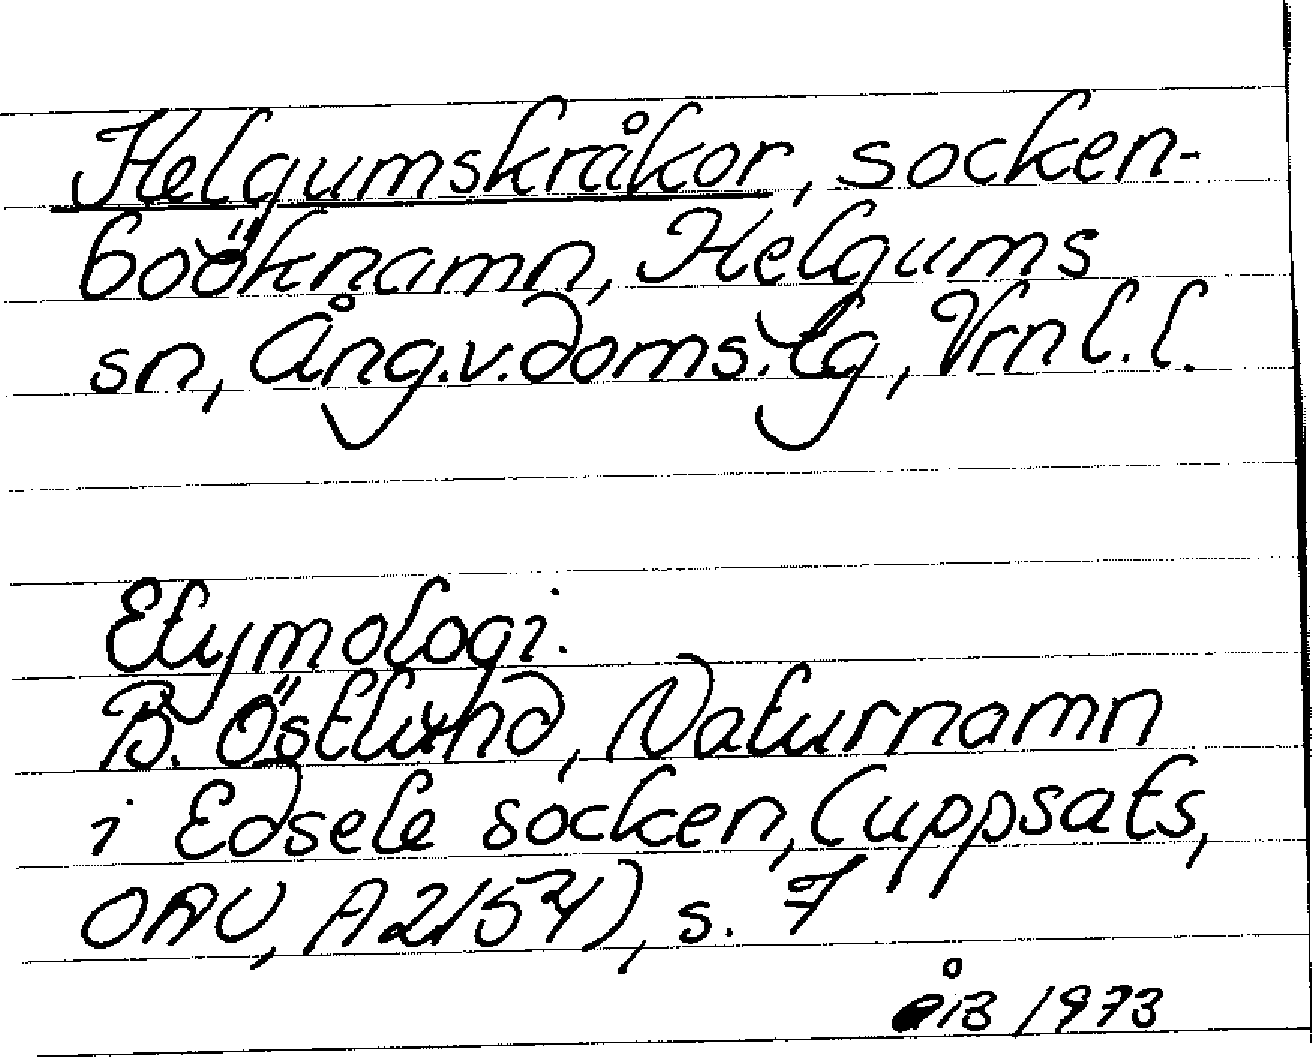 Helgumskråkor, socken-
boöknamn, Helgums
sn, Ång.v.doms.lg, Vrnl.l.
Etymologi.
B. Östlund, Naturnamn
i Edsele socken, (uppsats,
OAU, A2154), s. 7
ÅB 1973